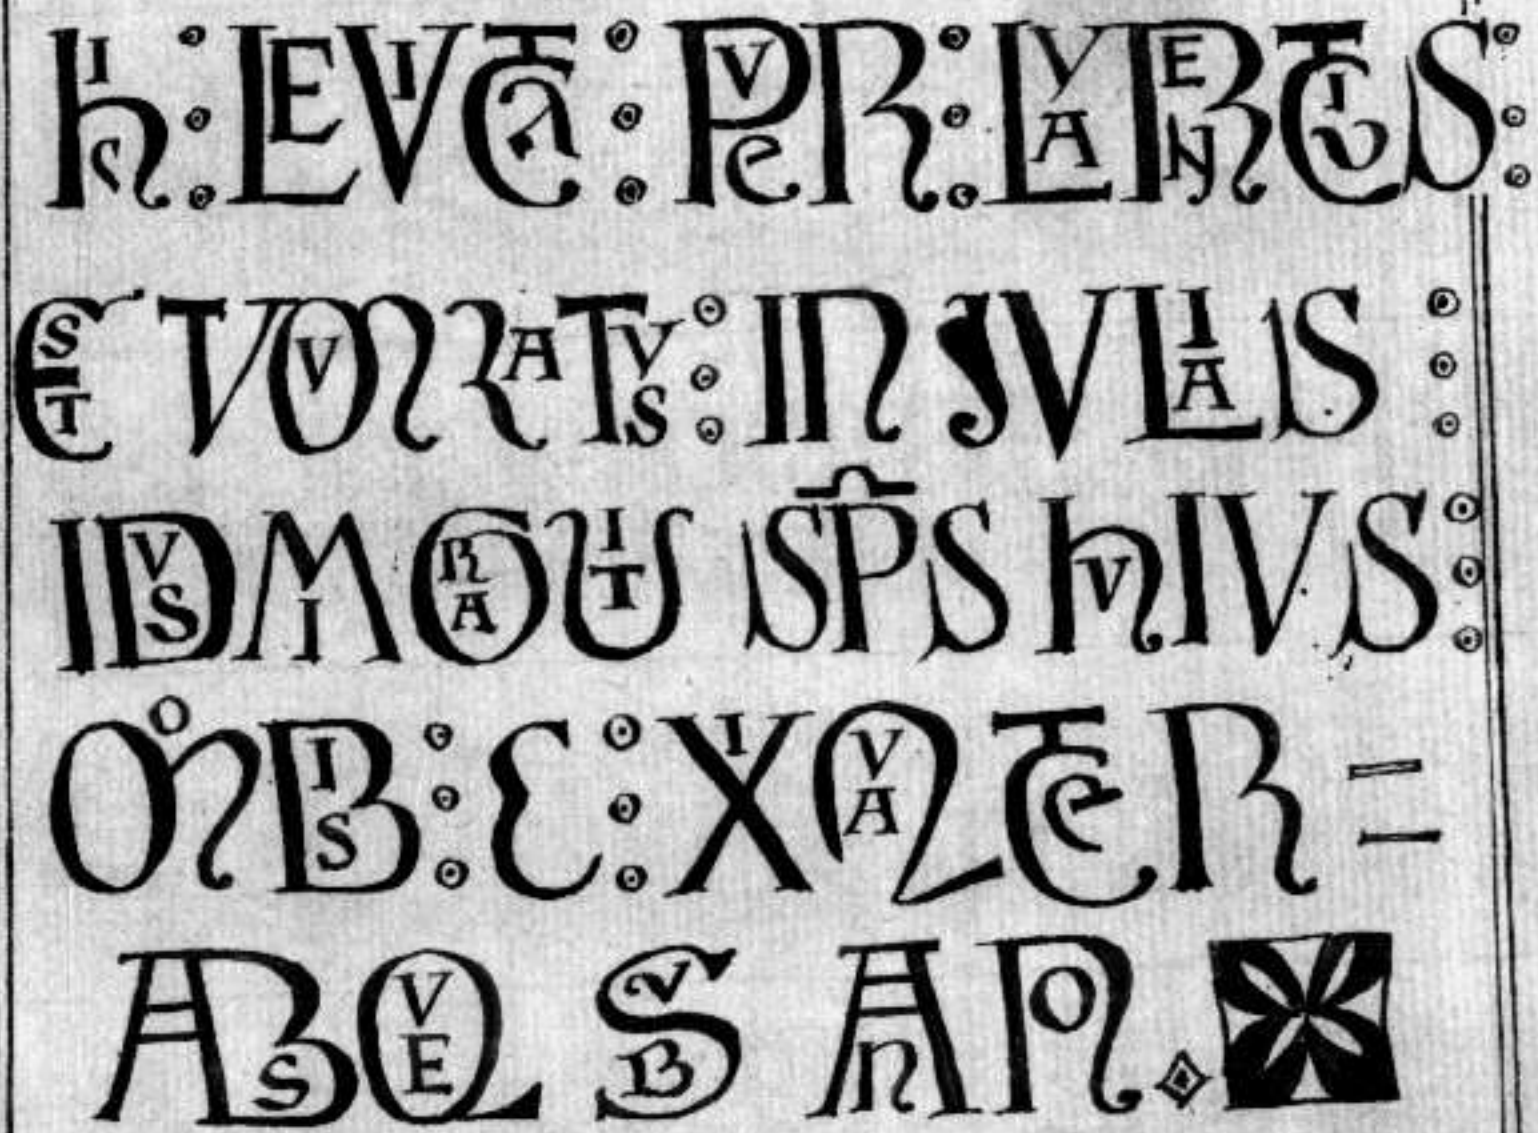 hIC : LEVITA : PVeR : LAVRENTIVS :
EST TVMVLATVS : IN IVLIAS :
IDVS MIGRAVIT SPS hVIVS :
Mo BIS : C : XI QVATeR =
ABSQVE SVB ANNO